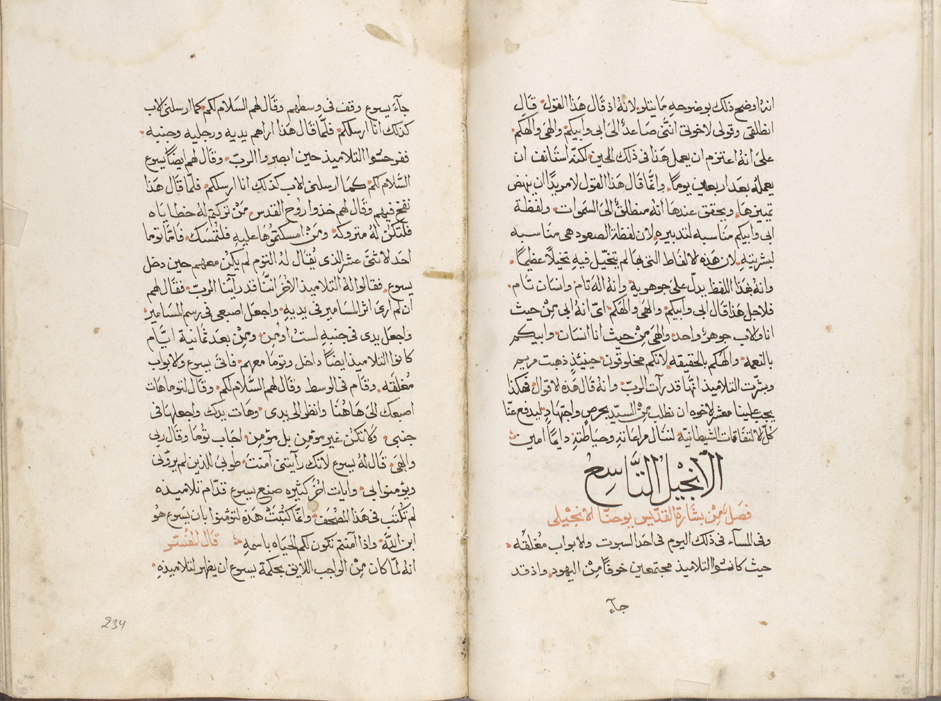 انه اوضح ذلك بوضوحه ما يتلو لانه اذ قال هذا القول قال
انطلقي وقولي لاخوتي انني صاعد الى ابي وابيكم والهي والهكم
على انه اعتزم ان يعمل هذا في ذلك الحين لكنه استانف ان
يعمله بعد اربعين يوما وانما قال هذا القول لا مريدا ان ينهض
تمييزها ويحقق عندها انه منطلق الى السموات ولفظة
ابي وابيكم مناسبه لتدبيره لان لفظة الصعود هي مناسبه
لبشريته لان هذه الالفاظ التي ها لم يتخيل فيه تخيلا عظيما
وانه بهذا اللفظ يدل على جوهريه وانه اله تام وانسان تام
فلاجل هذا قال ابي وابيكم والهي والهكم اي انه ابي من حيث
انا والاب جوهر واحد والهي من حيث انا انسان وابيكم
بالنعمه والهكم بالحقيقه لانكم مخلوقون حينئذ ذهبت مريم
وبشرت التلاميذ انها قد رات الرب وانه قال هذه الاقوال فهكذا
يجب علينا معشر الاخوه ان نطلب من السيد بحرص واجتهاد ليدفع عنا
كل الاتفاقات الشيطانيه لننال مراحمانه وحياطته دايما امين
الانجيل التاسع
فصل من بشارة القديس يوحنا الانجيلي
وفي المساء في ذلك اليوم في احد السبوت والابواب مغلقه
حيث كانوا التلاميذ مجتمعين خوفا من اليهود واذ قد
جاء
جاء يسوع وقف في وسطهم وقال لهم السلام لكم كما ارسلني الاب
كذلك انا ارسلكم فلما قال هذا اراهم يديه ورجليه وجنبه
ففرحوا التلاميذ حين ابصروا الرب وقال لهم ايضا يسوع
السلام لكم كما ارسلني الاب كذلك انا ارسلكم فلما قال هذا
نفخ فيهم وقال لهم خذوا روح القدس من تركتم له خطاياه
فلتكن له متروكة ومن امسكتموها عليه فلتمسك فاما توما
احد الاثني عشر الذي يقال له التوم لم يكن معهم حين دخل
يسوع فقالوا له التلاميذ الاخر اننا قد راينا الرب فقال لهم
ان لم ارى اثر المسامير في يديه واجعل اصبعي في رسم المسامير
واجعل يدي في جنبه لست اومن ومن بعد ثمانية ايام
كانوا التلاميذ ايضا داخل وتوما معهم فاتى يسوع والابواب
مغلقه وقام في الوسط وقال لهم السلام لكم وقال لتوما هات
اصبعك الى هاهنا وانظر الى يدي وهات يدك واجعلها في
جنبي ولا تكن غير مومن بل مومن اجاب توما وقال ربي
والهي قال له يسوع لانك رايتني امنت طوبى للذين لم يروني
ويؤمنوا بي وايات اخر كثيره صنع يسوع قدام تلاميذه
لم تكتب في هذا المصحف وانما كتبت هذه لتؤمنوا بان يسوع هو
ابن الله واذا امنتم تكون لكم الحياه باسمه قال المفسر
انه لما كان من الواجب اللايق بحكمة يسوع ان يظهر لتلاميذه
234